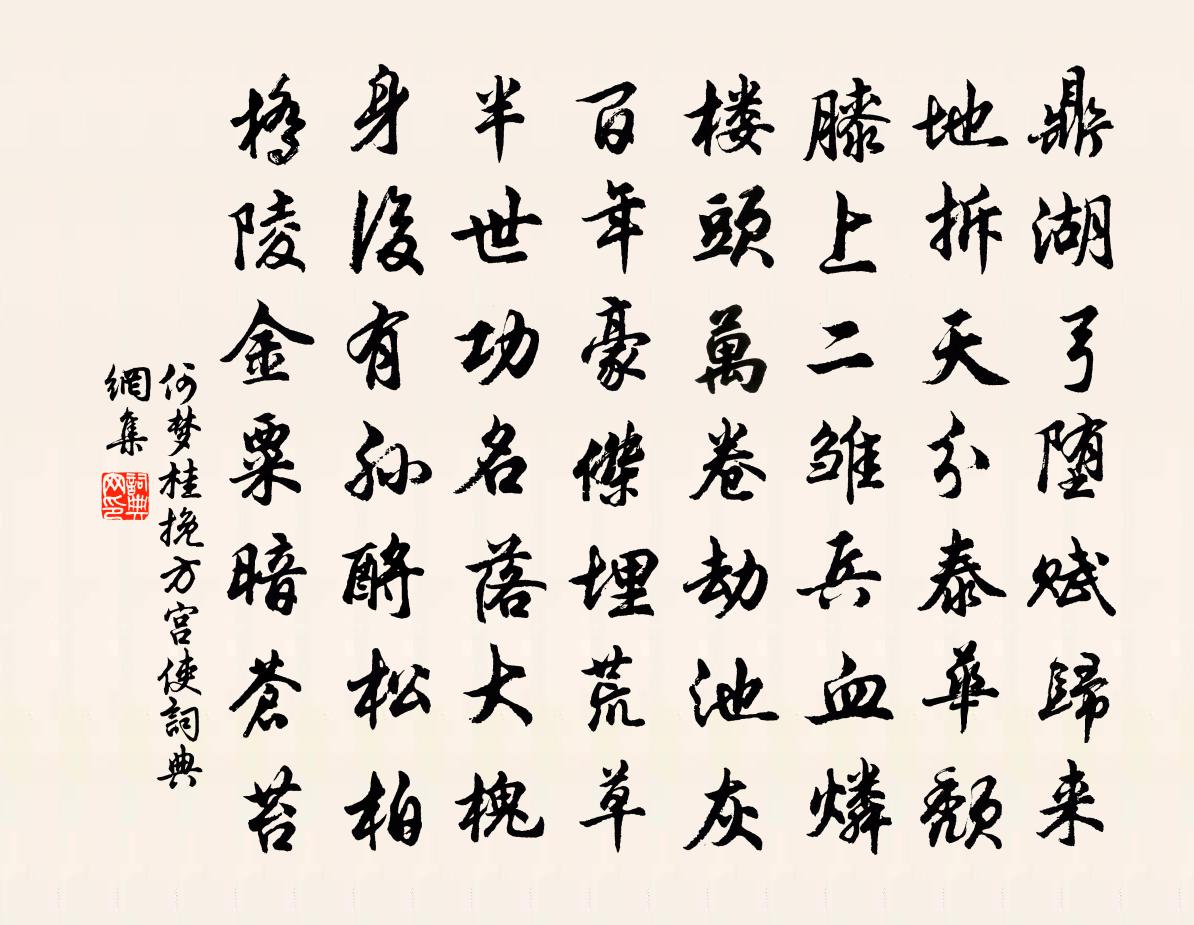 鼎湖弓堕赋歸来
地拆天分泰華頹
膝上二雏兵血燐
楼頭萬卷劫池灰
百年豪傑埋荒草
半世功名落大槐
身後有孙酹松柏
橋陵金粟暗蒼苔
何梦桂挽方宫使詞典
網集
詞典网印